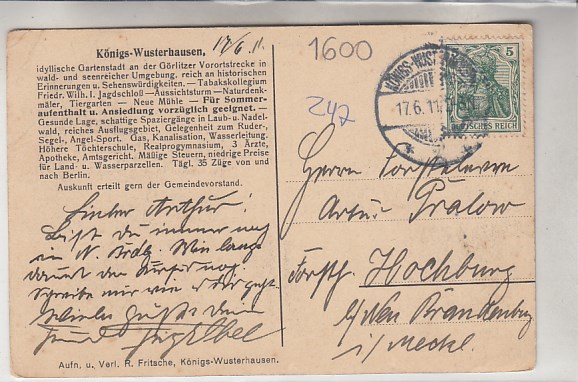 Königs-Wusterhausen,
17/6. 11.
idyllische Gartenstadt an der Görlitzer Vorortstrecke in
wald- und seenreicher Umgebung. reich an historischen
Erinnerungen u. Sehenswürdigkeiten. — Tabakskollegium
Friedr. Wilh. I. Jagdschloß —Aussichtsturm —Naturdenk-
mäler, Tiergarten — Neue Mühle — Für Sommer-
aufenthalt u. Ansiedlung vorzüglich geeignet. —
Gesunde Lage, schattige Spaziergänge in Laub- u. Nadel-
wald, reiches Ausflugsgebiet, Gelegenheit zum Ruder-,
Segel-, Angel-Sport. Gas, Kanalisation, Wasserleitung,
Höhere Töchterschule, Realprogymnasium, 3 Ärzte,
Apotheke, Amtsgericht. Mäßige Steuern, niedrige Preise
für Land- u. Wasserparzellen. Tägl. 35 Züge von und
nach Berlin.
Auskunft erteilt gern der Gemeindevorstand.
Lieber Arthur!
Bist du immer noch
in N. Brdbg. Wie lange
dauert
Schreibe mir wie es dir geht.
Aufn. u. Verl. R. Fritsche, Königs-Wusterhausen.
1600
247
KÖNIGS-WUST
17.6.11
5
DEUTSCHES REICH
Herrn
Artur Pralow
Forsth. Hochburg
b/ Neu Brandenburg
i/Meckl.